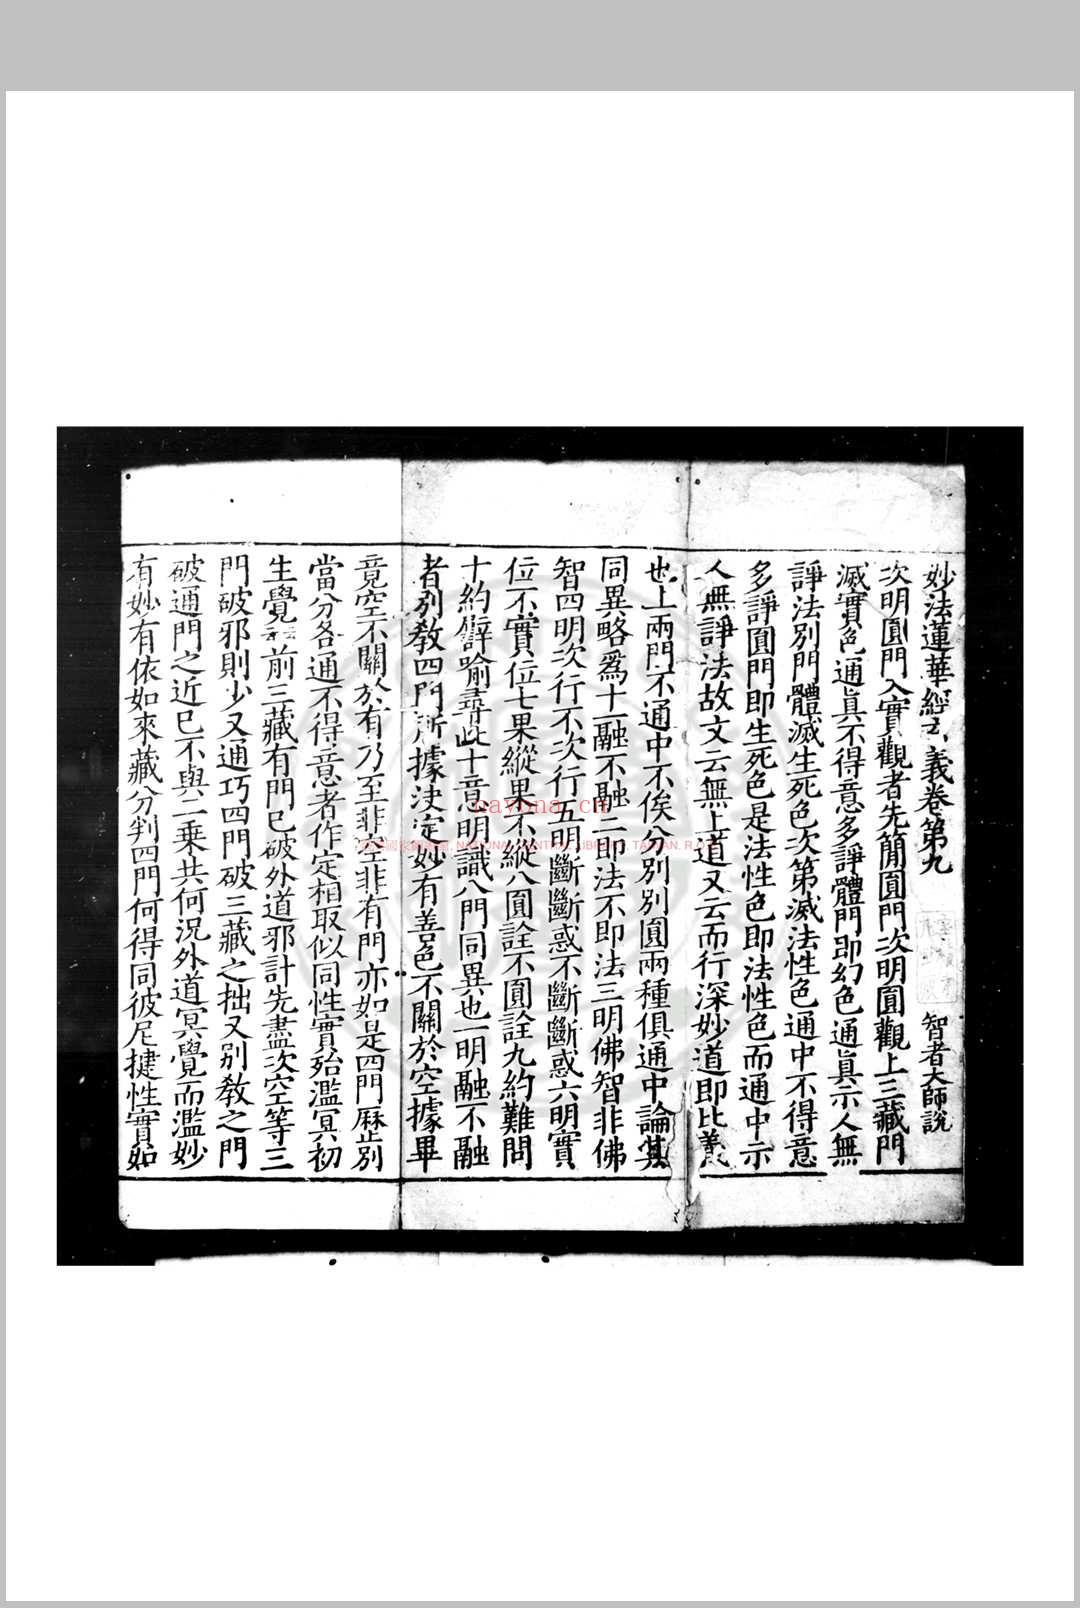 妙法蓮華經玄義卷第九 智者大師說
次明圓門入實觀者先簡圓門次明圓觀上三藏門
滅實色通眞不得意多諍體門即幻色通眞示人無
諍法別門體滅生死色次第滅法性色通中不得意
多諍圓門即生死色是法性色即法性色而通中示
人無諍法故文云無上道又云而行深妙道即此義
也上兩門不通中不俟分別別圓兩種俱通中論其
同異略爲十一融不融二即法不即法三明佛智非佛
智四明次行不次行五明斷斷惑不斷斷惑六明實
位不實位七果縱果不縱八圓詮不圓詮九約難問
十約譬喻尋此十意明識八門同異也一明融不融
者別教四門所據決定妙有善色不關於空據畢
竟空不關於有乃至非空非有門亦如是四門歷別
當分各通不得意者作定相取似同性實殆濫冥初
生覺 前三藏有門已破外道邪計先盡次空等三
門破邪則少又通巧四門破三藏之拙又別教之門
破通門之近已不與二乘共何況外道冥覺而濫妙
有妙有依如來藏分判四門何得同彼尼揵性實如
nayona.cn
NATIONAL CENTRAL LIBRARY, TAIWAN. R.O.C